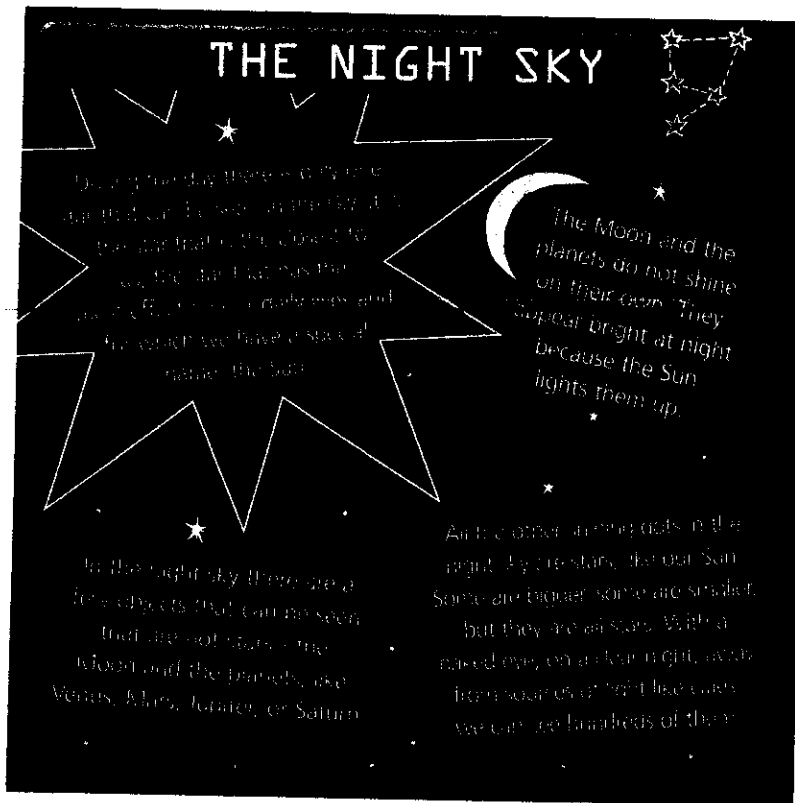 THE NIGHT SKY
During the day there is only one
star that can be seen in the sky. It is
the star that is the closest to
us, the star that has the
most effect on our daily lives and
for which we have a special
name: the Sun.
The Moon and the
planets do not shine
on their own. They
appear bright at night
because the Sun
lights them up.
In the night sky there are a
few objects that can be seen
that are not stars - the
Moon and the planets, like
Venus, Mars, Jupiter, or Saturn.
All the other shining dots in the
night sky are stars, like our Sun.
Some are bigger, some are smaller,
but they are all stars. With a
naked eye, on a clear night, away
from sources of light like cities,
we can see hundreds of them.